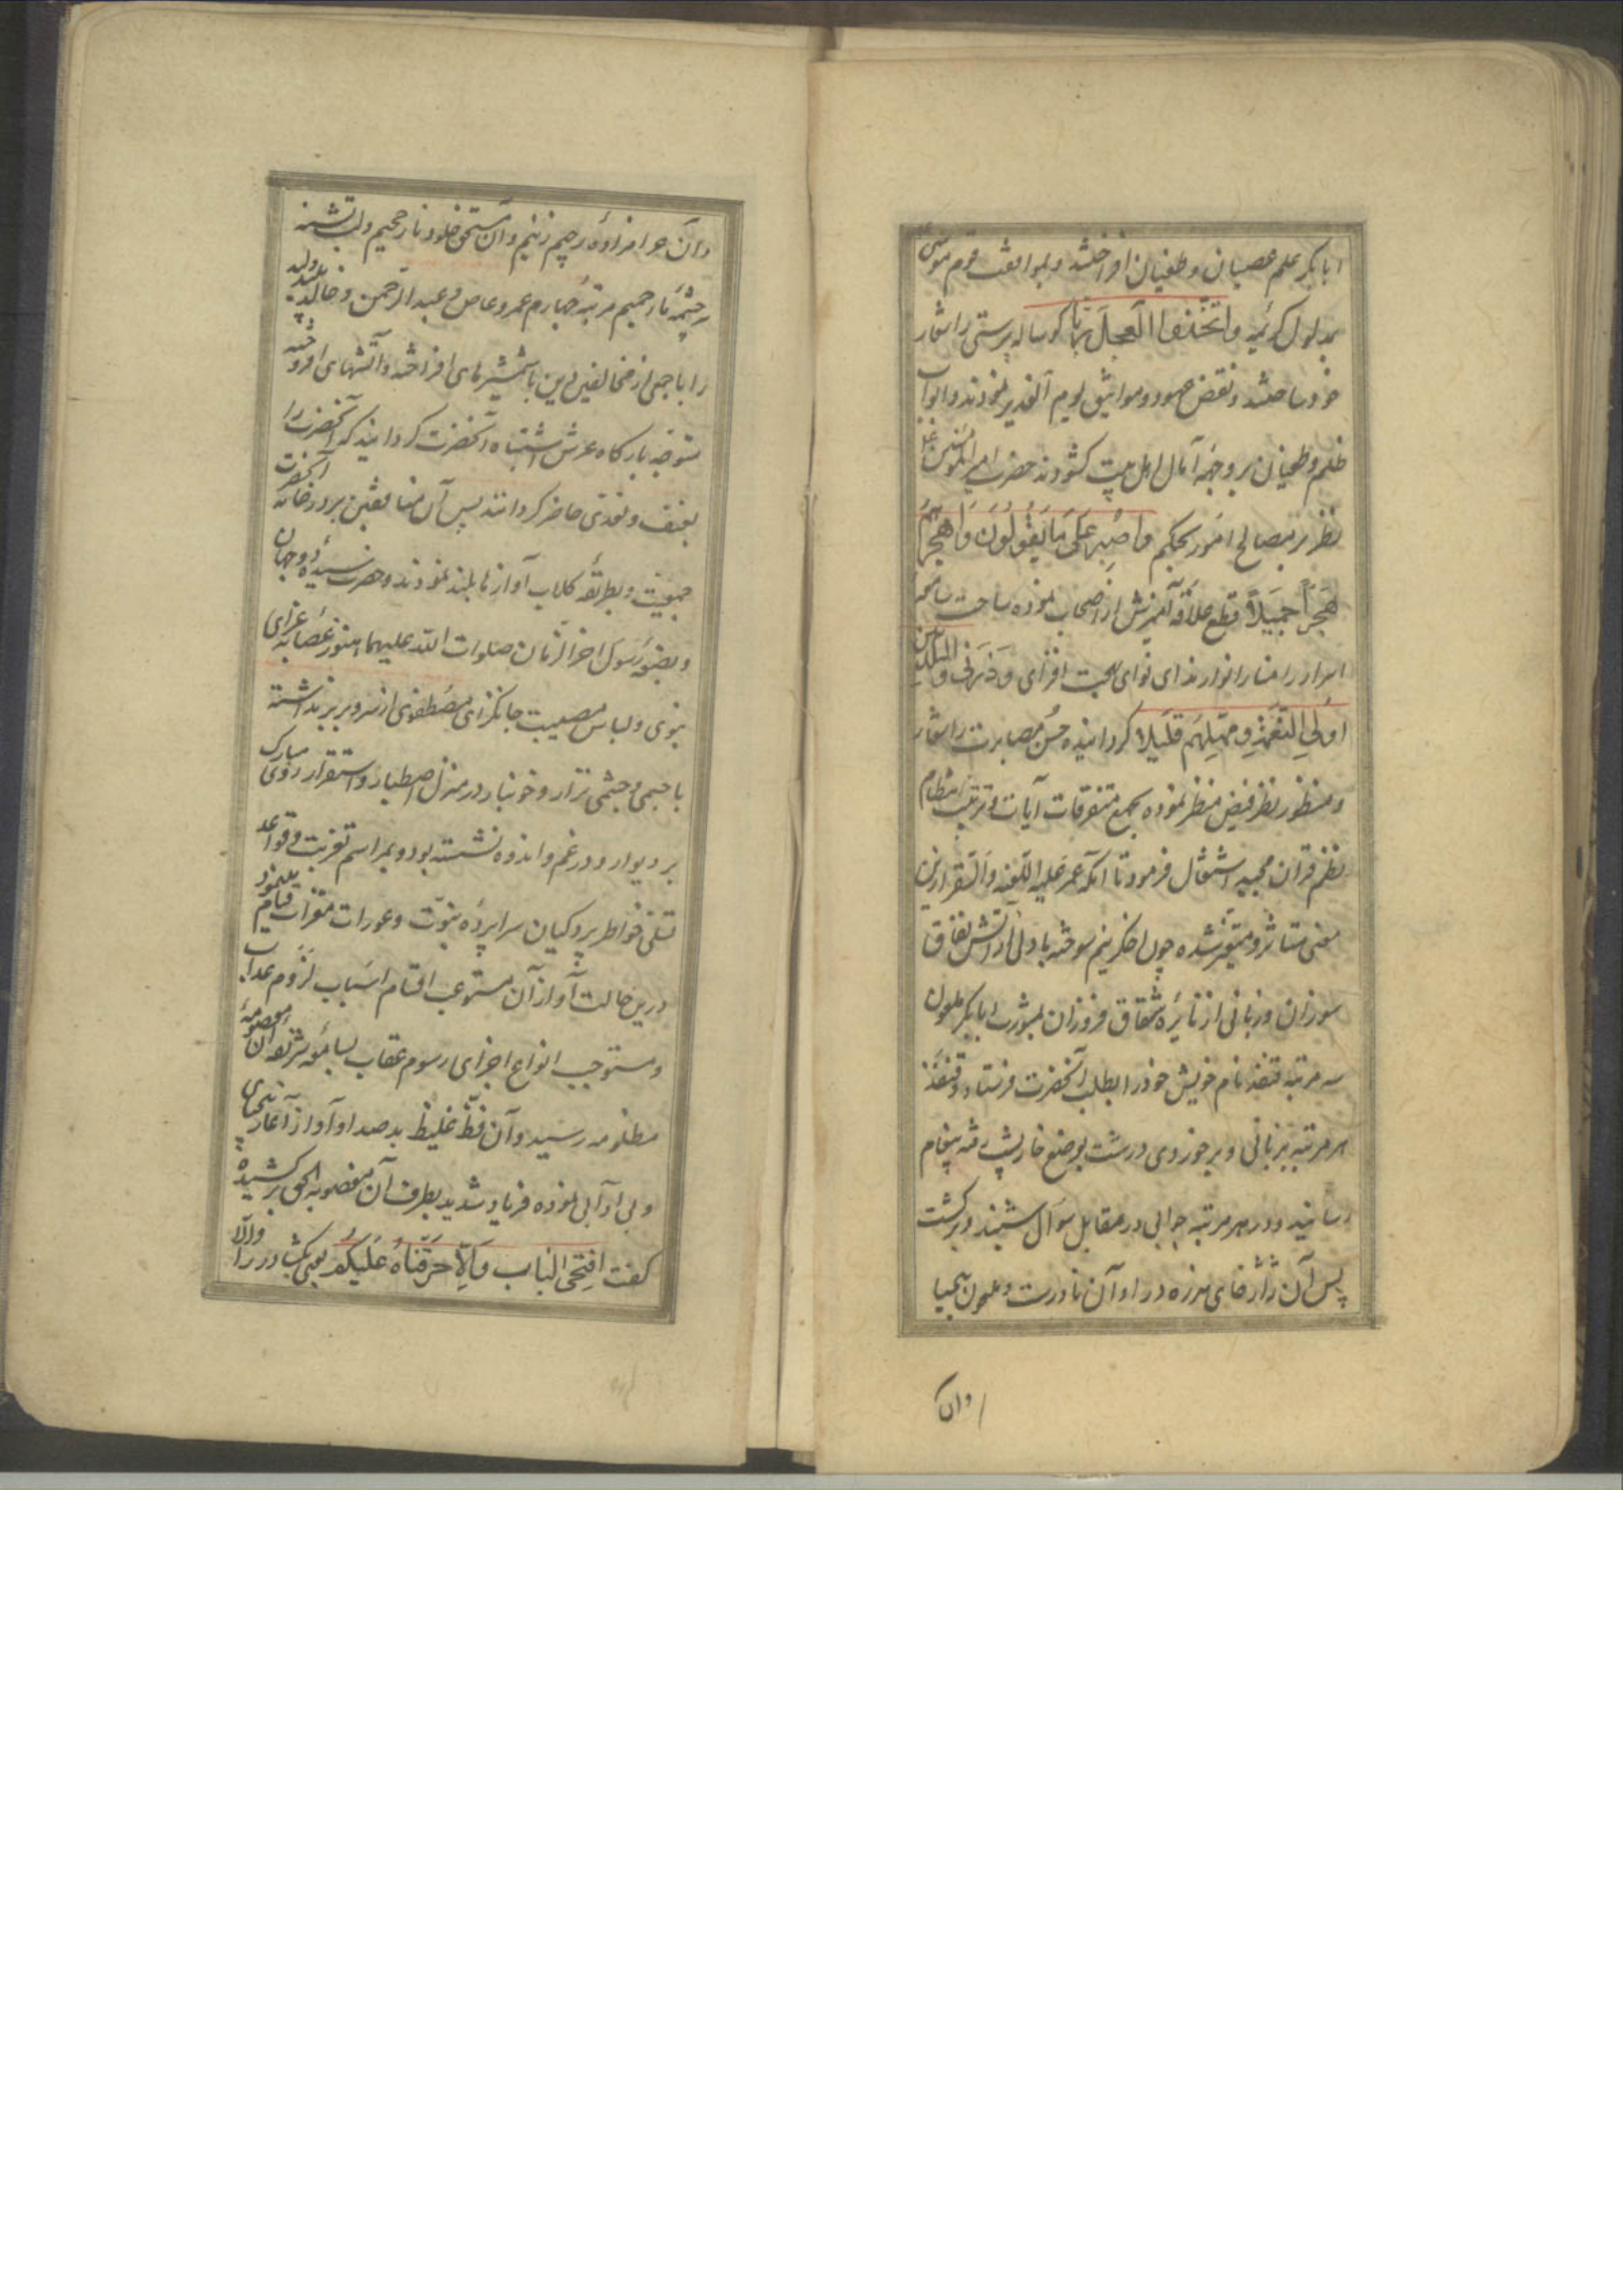 ابابکر علم عصیان و طغیان افراختند و بموافقت قوم موسی
بمدلول کریمه واتخذوا العجل ربا کوساله پرستی را شعار
خود ساختند و نقض عهود و مواثیق یوم الغدیر نمودند و ابواب
ظلم و طغیان بر وجهه آمال اهل بیت کشودند حضرت امیر المؤمنین
نظر بر مصالح امور بحکم واصبر على ما يقولون واهجرهم
هجرا جميلا قطع علاقه آمیزش از اصحاب نموده ساحت
اسرار را منار انوار ندای نوای محبت افزای وذرنی والمکذبین
اولی النعمة ومهلهم قلیلا کردانیده حسن مصابرت را شعار
و منظور نظر فیض منظر نموده بجمع متفرقات آیات و ترتیب انتظام
نظم قرآن مجید اشتغال فرمود تا آنکه عمر علیه اللعنه والسقر ازین
معنی متاثر و متغیر شده چون اخکر نیم سوخته با دلی از آتش نفاق
سوزان و زبانی از نایره شقاق فروزان بمشورت ابابکر ملعون
سه مرتبه قنفذ نام خویش خود را بطلب آنحضرت فرستاد و قنفذ
هر مرتبه بزبانی و برخوردی درشت بوضع خارپشت رفته پیغام
رسانید و در هر مرتبه جوابی در مقابل سؤال شنید و برکشت
پس آن ژاژخای هرزه درا و آن نادرست و ملعون بیحیا
وان
و آن حرامزاده رجیم زنیم و آن مستحق خلود نار جحیم و لب تشنه
سرچشمه نار حمیم مرتبه چهارم عمرو عاص و عبد الرحمن و خالد ولید پلید
را با جمعی از مخالفین دین با شمشیرهای افراخته و آتشهای افروخته
متوجه بارکاه عرش اشتباه آنحضرت کردانید که آنحضرت را
بعنف و تعدی حاضر کردانند پس آن منافقین بر در خانه آنحضرت
جمعیت و بطریقه کلاب آوازها بلند نمودند و حضرت سیده دو جهان
و بضعه رسول آخر الزمان صلوات الله علیهما هنوز عصابه عزای
نبوی و لباس مصیبت جانکزای مصطفوی از سر و بر برنداشته
با جسمی و چشمی نزار و خونبار در منزل اصطبار و استقرار روی مبارک
بر دیوار و در غم و اندوه نشسته بود و بمراسم تعزیت و قواعد
تسلی خواطر پردکیان سراپرده نبوت و عورات قیام مینمود
درین حالت آواز آن مستوعب اقسام اسباب لزوم عذاب
و مستوجب انواع اجزای رسوم عقاب بسامعه شریفه آن معصومه
مظلومه رسید و آن فظ غلیظ بد صدا و آواز آغاز بیحیایی
و بی آدابی نموده فریاد شدید بطرف آن مغصوبه الحق برکشیده
کفت افتحی الباب والا حرقناه علیکم یعنی بکشا در را والا